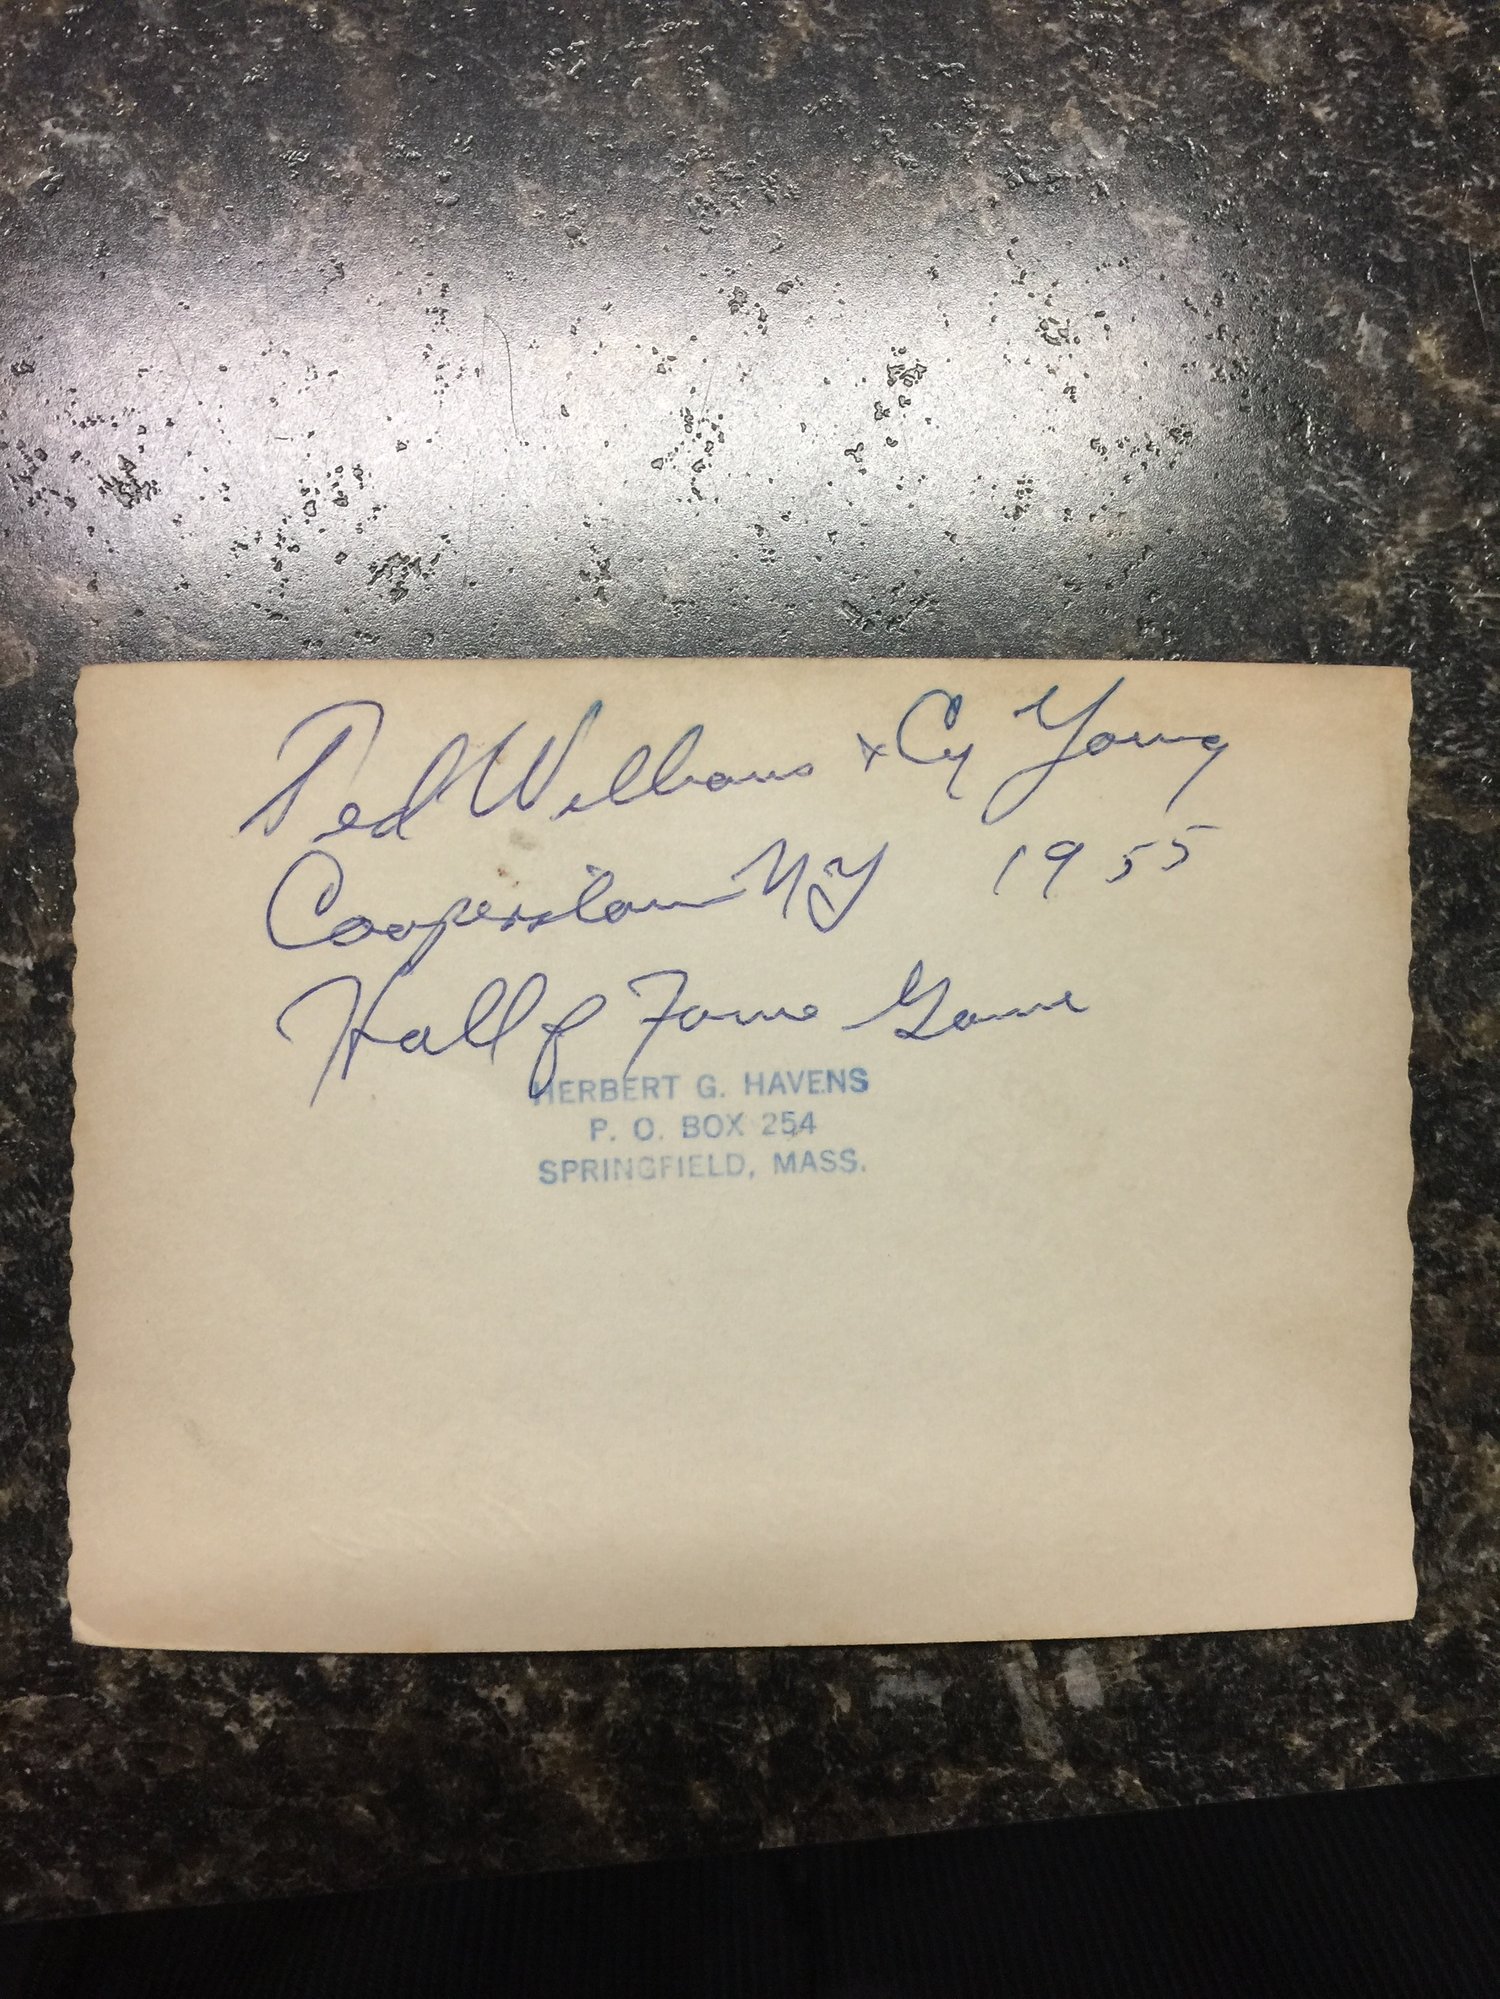 Ted Williams + Cy Young
Cooperstown NY 1955
Hall of Fame Game
HERBERT G. HAVENS
P. O. BOX 254
SPRINGFIELD, MASS.